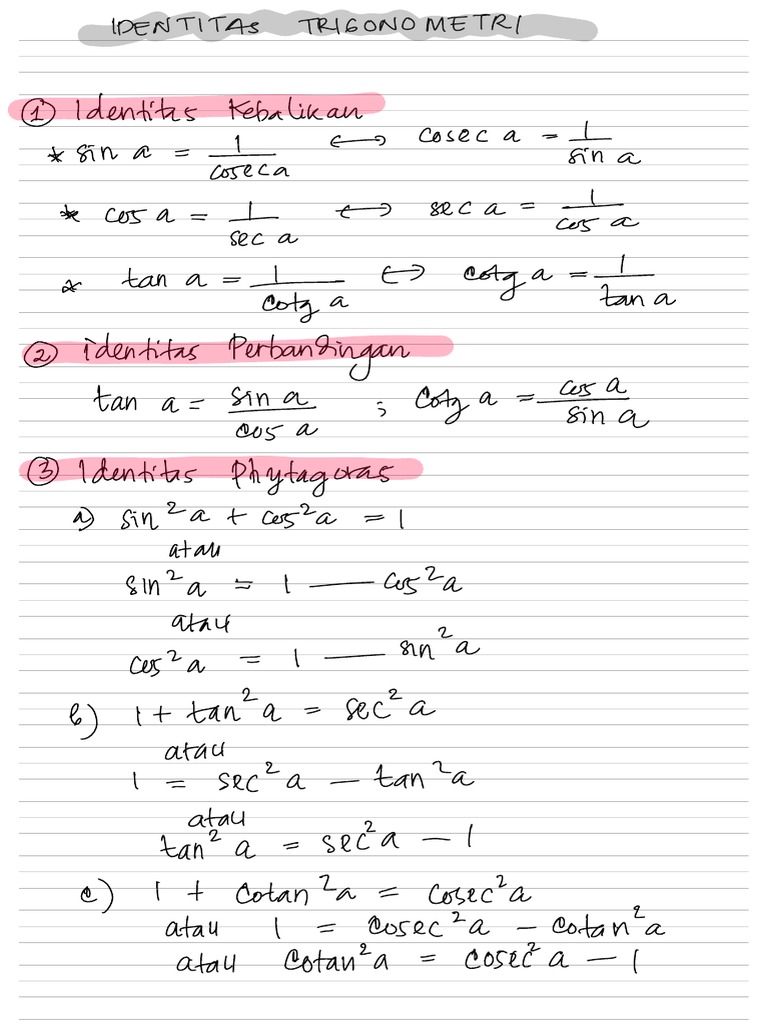 IDENTITAS TRIGONOMETRI
① Identitas Kebalikan
* sin a = 1/cosec a ⟷ cosec a = 1/sin a
* cos a = 1/sec a ⟷ sec a = 1/cos a
* tan a = 1/cotg a ⟷ cotg a = 1/tan a
② identitas Perbandingan
tan a = sin a/cos a ; cotg a = cos a/sin a
③ Identitas Phytagoras
a) sin²a + cos²a = 1
atau
sin²a = 1 — cos²a
atau
cos²a = 1 — sin²a
b) 1 + tan²a = sec²a
atau
1 = sec²a — tan²a
atau
tan²a = sec²a — 1
c) 1 + cotan²a = cosec²a
atau 1 = cosec²a - cotan²a
atau cotan²a = cosec²a — 1